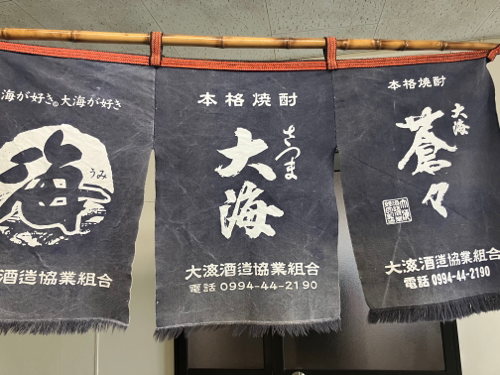 海が好き。大海が好き
海
うみ
酒造協業組合
本格焼酎
さつま
大海
大海酒造協業組合
電話 0994-44-2190
本格焼酎
大海
蒼々
大海酒造協業組合
電話 0994-44-2190